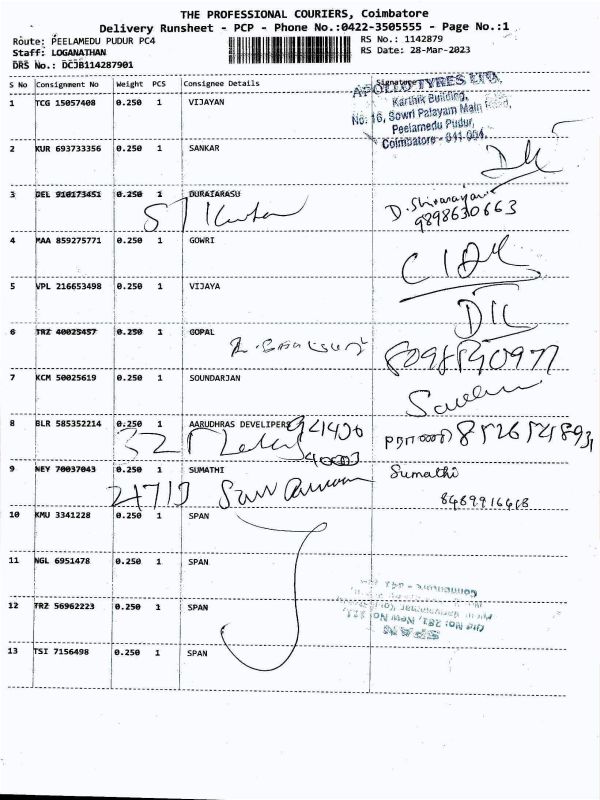 THE PROFESSIONAL COURIERS, Coimbatore
Delivery Runsheet - PCP - Phone No.:0422-3505555 - Page No.:1
Route: PEELAMEDU PUDUR PC4 RS No.: 1142879
Staff: LOGANATHAN RS Date: 28-Mar-2023
DRS No.: DCJB114287901
S No Consignment No Weight PCS Consignee Details Signature
APOLLO TYRES LTD,
1 TCG 15057408 0.250 1 VIJAYAN
Karthik Building,
No: 16, Sowri Palayam Main Road,
Peelamedu Pudur,
Coimbatore - 641 004.
2 KUR 693733356 0.250 1 SANKAR
3 DEL 910173451 0.250 1 DURAIARASU
D. Shivanayani
9898630663
4 MAA 859275771 0.250 1 GOWRI
5 VPL 216653498 0.250 1 VIJAYA
6 TRZ 40025457 0.250 1 GOPAL
8098890977
7 KCM 50025619 0.250 1 SOUNDARJAN
8 BLR 585352214 0.250 1 AARUDHRAS DEVELIPERS
9 NEY 70037043 0.250 1 SUMATHI
Sumathi
8489916418
10 KMU 3341228 0.250 1 SPAN
11 NGL 6951478 0.250 1 SPAN
12 TRZ 56962223 0.250 1 SPAN
Old No: 281, New No: 111,
SPAN
13 TSI 7156498 0.250 1 SPAN